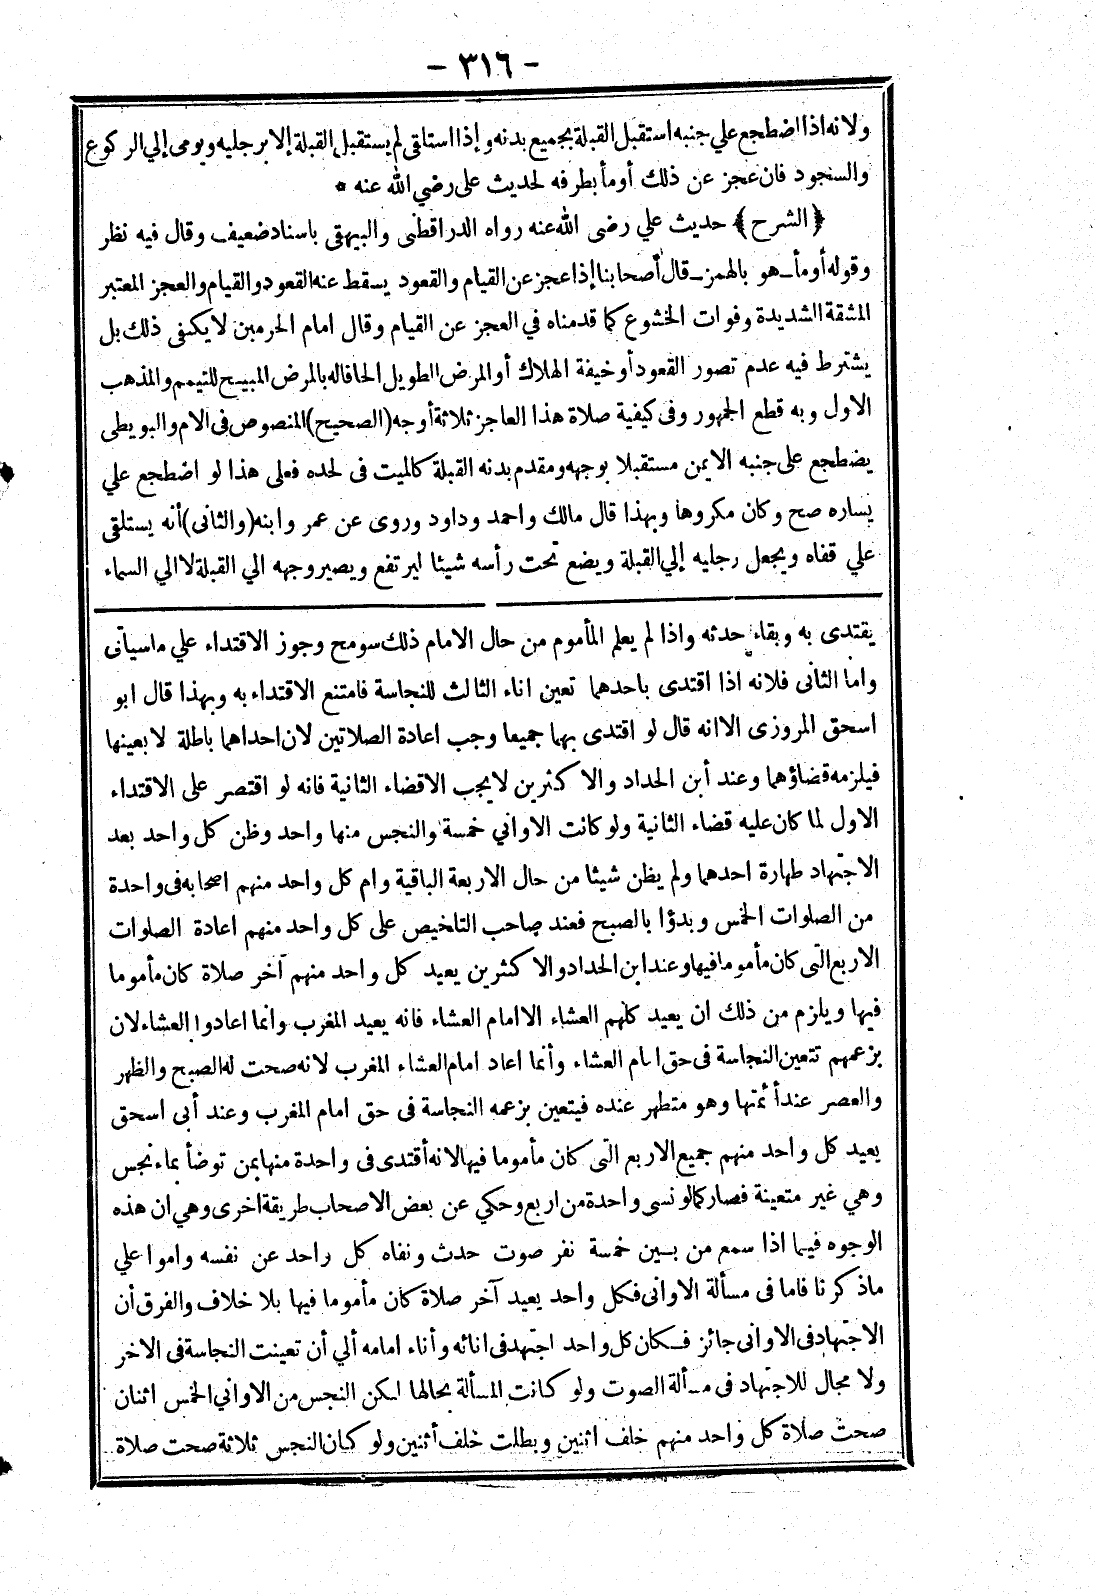 - ٣١٦ -
ولانه اذا اضطجع علي جنبه استقبل القبلة بجميع بدنه وإذا استلقى لم يستقبل القبلة إلا برجليه ويومى إلي الركوع
والسجود فان عجز عن ذلك أومأ بطرفه لحديث على رضي الله عنه *
﴿ الشرح ﴾ حديث علي رضى الله عنه رواه الدارقطنى والبيهقى باسناد ضعيف وقال فيه نظر
وقوله أومأ ــ هو بالهمز ــ قال أصحابنا إذا عجز عن القيام والقعود يسقط عنه القعود والقيام والعجز المعتبر
المشقة الشديدة وفوات الخشوع كما قدمناه في العجز عن القيام وقال امام الحرمين لا يكفى ذلك بل
يشترط فيه عدم تصور القعود أو خيفة الهلاك أو المرض الطويل الحاقا له بالمرض المبيح للتيمم والمذهب
الاول وبه قطع الجمهور وفى كيفية صلاة هذا العاجز ثلاثة أوجه (الصحيح) المنصوص فى الام والبويطى
يضطجع على جنبه الايمن مستقبلا بوجهه ومقدم بدنه القبلة كالميت فى لحده فعلى هذا لو اضطجع علي
يساره صح وكان مكروها وبهذا قال مالك واحمد وداود وروى عن عمر وابنه (والثانى) أنه يستلقى
علي قفاه ويجعل رجليه إلي القبلة ويضع تحت رأسه شيئا ليرتفع ويصير وجهه الي القبلة لا الي السماء
يقتدى به وبقاء حدثه واذا لم يعلم المأموم من حال الامام ذلك سومح وجوز الاقتداء علي ماسيأتى
واما الثانى فلانه اذا اقتدى باحدهما تعين اناء الثالث للنجاسة فامتنع الاقتداء به وبهذا قال ابو
اسحق المروزى الا انه قال لو اقتدى بهما جميعا وجب اعادة الصلاتين لان احداهما باطلة لا بعينها
فيلزمه قضاؤهما وعند أبن الحداد والاكثرين لا يجب الاقضاء الثانية فانه لو اقتصر على الاقتداء
الاول لما كان عليه قضاء الثانية ولو كانت الاواني خمسة والنجس منها واحد وظن كل واحد بعد
الاجتهاد طهارة احدهما ولم يظن شيئا من حال الاربعة الباقية وام كل واحد منهم اصحابه فى واحدة
من الصلوات الخمس وبدؤا بالصبح فعند صاحب التلخيص على كل واحد منهم اعادة الصلوات
الاربع التى كان مأموما فيها وعند ابن الحداد والاكثرين يعيد كل واحد منهم آخر صلاة كان مأموما
فيها ويلزم من ذلك ان يعيد كلهم العشاء الا امام العشاء فانه يعيد المغرب وانما اعادوا العشاء لان
بزعمهم تتعين النجاسة فى حق امام العشاء وأنما اعاد امام العشاء المغرب لانه صحت له الصبح والظهر
والعصر عند أئمتها وهو متطهر عنده فيتعين بزعمه النجاسة فى حق امام المغرب وعند أبى اسحق
يعيد كل واحد منهم جميع الاربع التى كان مأموما فيها لانه أقتدى فى واحدة منها بمن توضأ بماء نجس
وهي غير متعينة فصار كما لو نسى واحدة من اربع وحكي عن بعض الاصحاب طريقة اخرى وهي ان هذه
الوجوه فيما اذا سمع من بين خمسة نفر صوت حدث ونفاه كل واحد عن نفسه واموا علي
ماذكرنا فاما فى مسألة الاوانى فكل واحد يعيد آخر صلاة كان مأموما فيها بلا خلاف والفرق أن
الاجتهاد فى الاوانى جائز فكان كل واحد اجتهد فى انائه وأناء امامه ألي أن تعينت النجاسة فى الاخر
ولا مجال للاجتهاد فى مسألة الصوت ولو كانت المسألة بحالها لكن النجس من الاواني الخمس اثنان
صحت صلاة كل واحد منهم خلف اثنين وبطلت خلف أثنين ولو كان النجس ثلاثة صحت صلاة